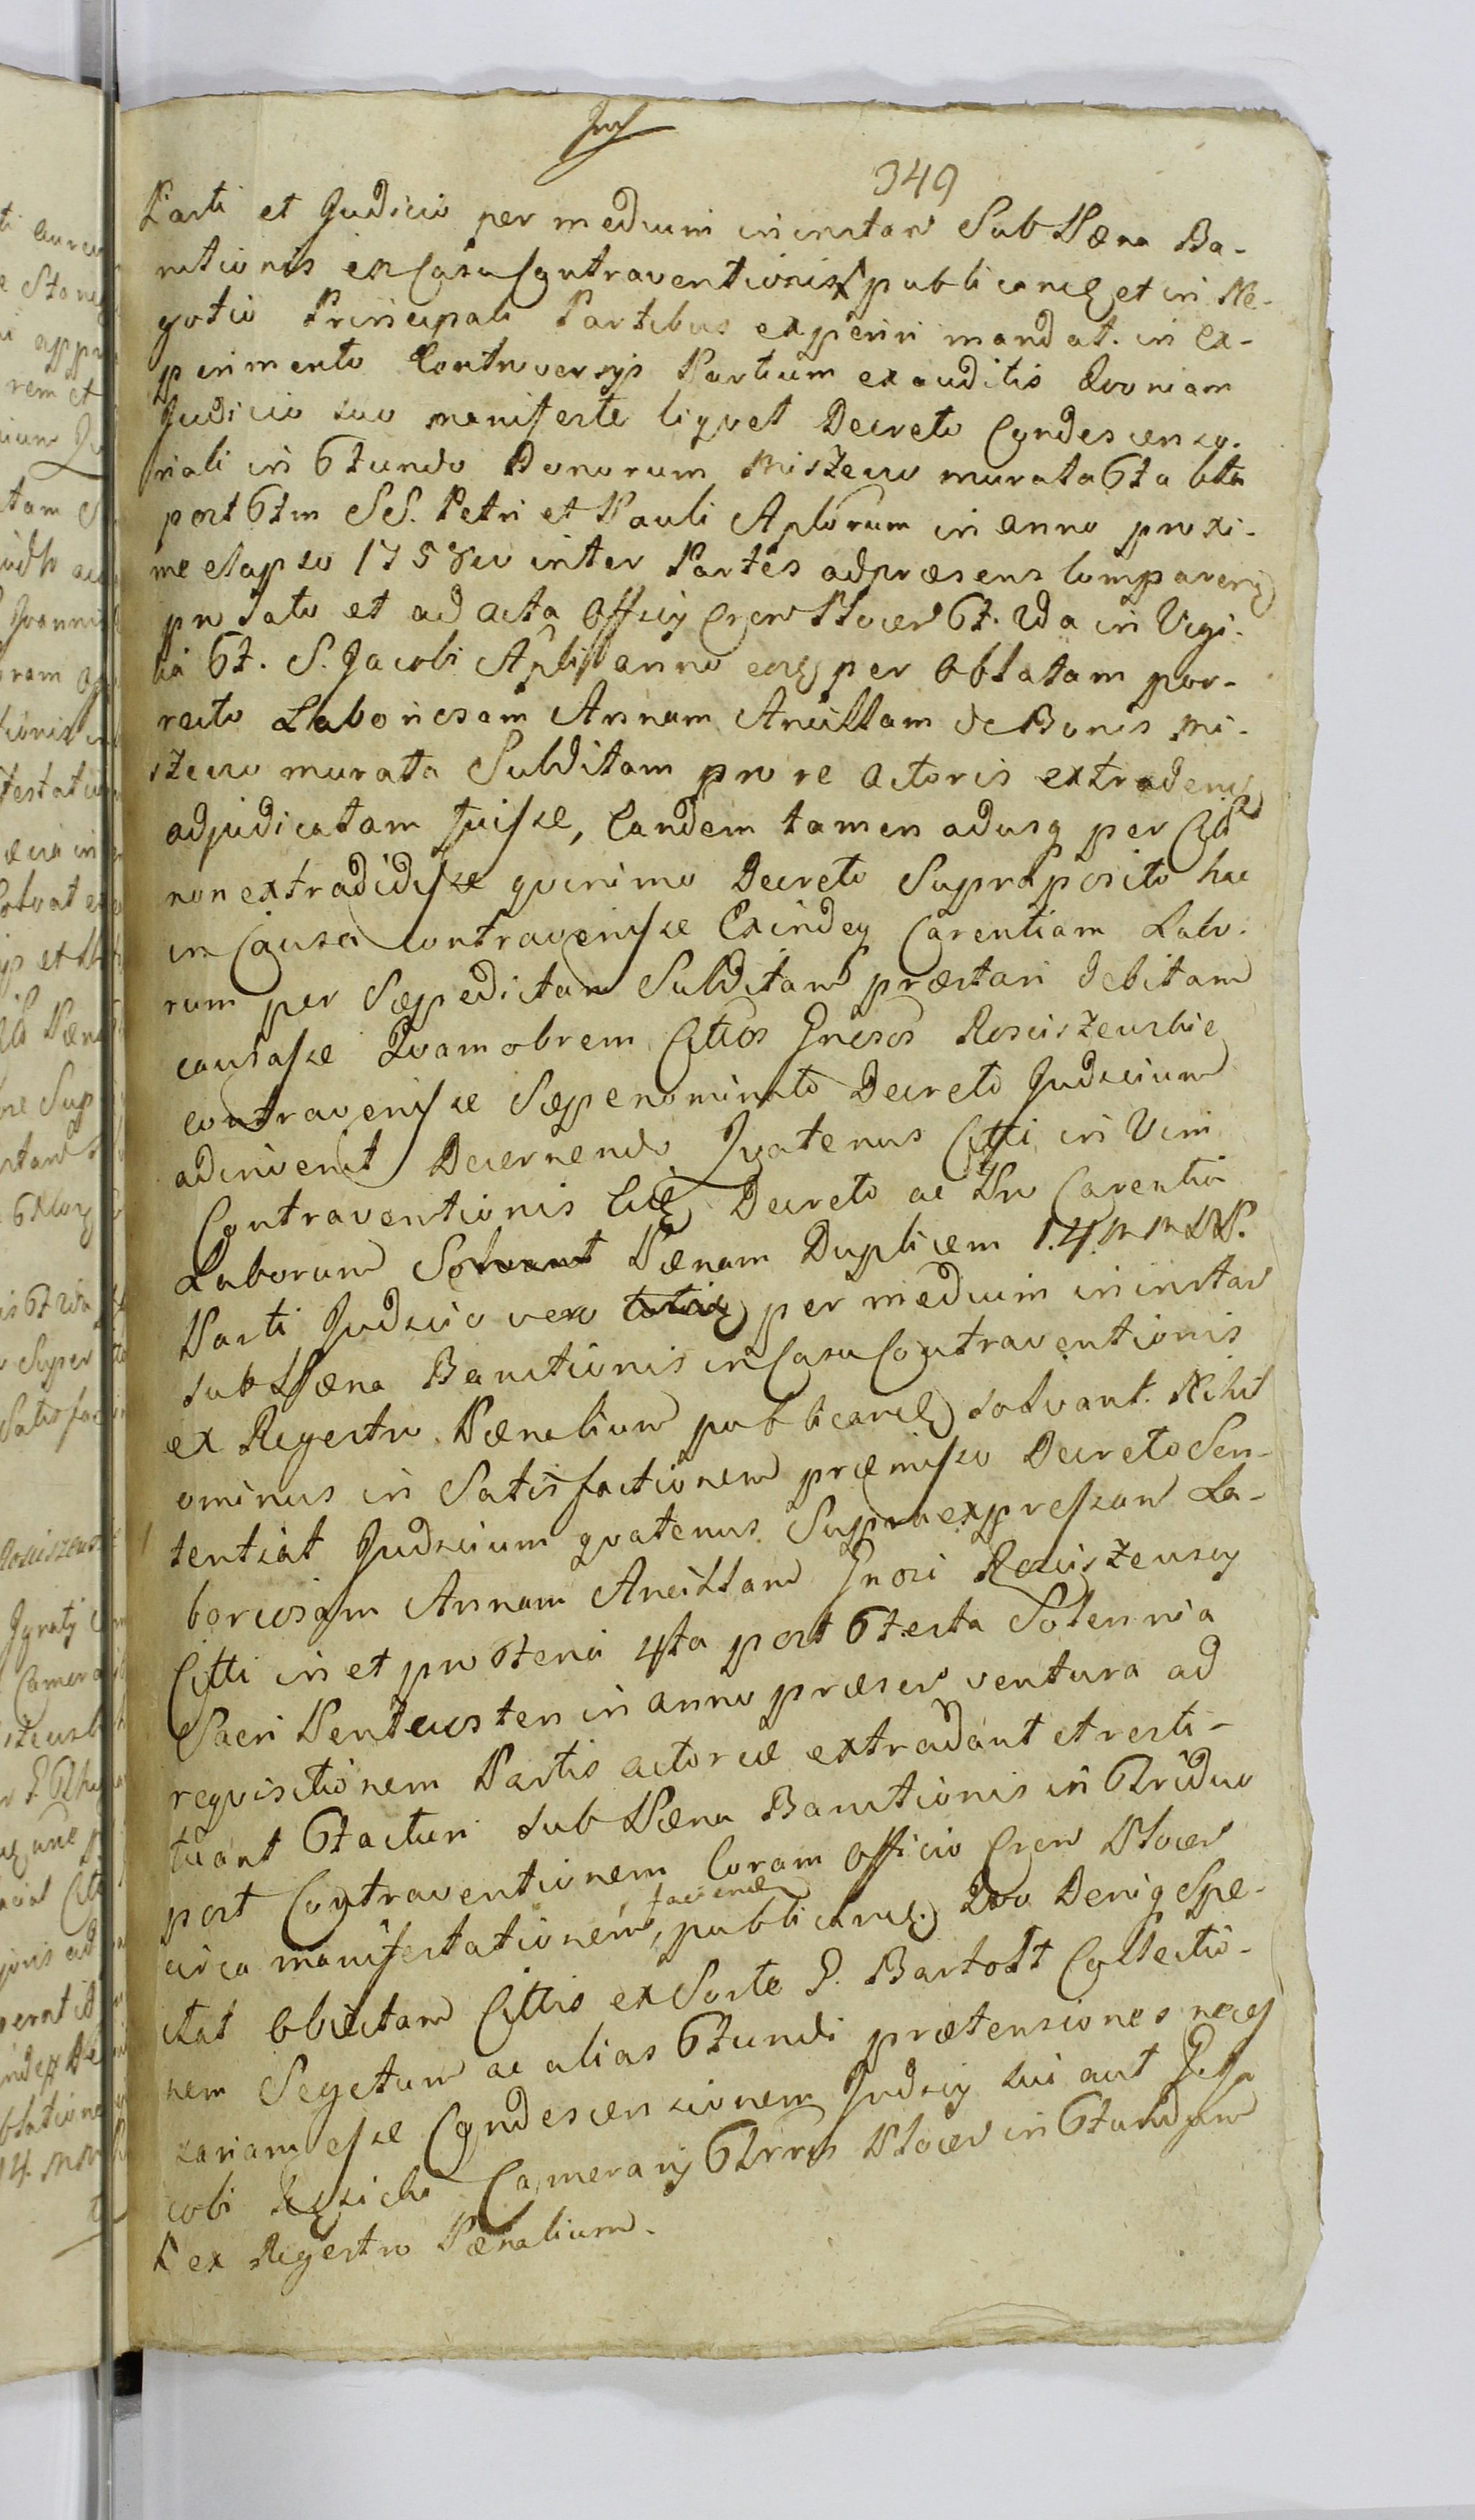 349
Parti et Judicio per medium in instan Sub Pæna Ba-
nitionis ex Casu Contraventionis publicand et in Ne-
gotio Principali Partibus experiri mandat. in Ex-
perimento Controversys Partium exauditis Qvoniam
Judicio suo manifeste liqvet Decreto Condescenso-
riali in Fundo Bonorum Miszewo murata Fa 6ta
post Ftm SS. Petri et Pauli Aplorum in anno proxi-
me elapso 1758vo inter Partes ad præsens comparen
pro lato et ad Acta Officy Cren Plocen F. 2da in Vigi-
lia F. S. Jacobi Apli anno eod per Oblatam por-
recto Laboriosam Annam Ancillam de Bonis Mi-
szewo murata Subditam pro re Actoris extraden
adjudicatam fuisse, Eandem tamen adusq per Citt
non extradidisse qvinimo Decreto Supraposito hac
in Causa contravenisse Exindeq Carentiam Labo-
rum per Sæpedictam Subditam præstari debitam
causasse Qvamobrem Cittos Gnesos Rosciszewskie
contravenisse Sæpenominato Decreto Judicium
adinvenit Decernendo Qvatenus Citti in Vim
Contraventionis Eid Decreto ac Pro Carentia
Laborum Solvant Pænam Duplicem 1.4. M M PP.
Parti Judicio vero per medium in instan
sub Pæna Banitionis in Casu Contraventionis
ex Regestro Pænalium publicand solvant. Nihil
ominus in Satisfactionem præmisso Decreto Sen-
tentiat Judicium qvatenus Supra expressam La-
boriosam Annam Ancillam Gnosi Rosciszewscy
Citti in et pro Feria 4ta post Festa Solennia
Sacri Pentecosten in anno præsen ventura ad
reqvisitionem Partis Actoreæ extradant et resti-
tuant Facturi sub Pæna Banitionis in Triduo
post Contraventionem Coram Officio Cren Plocen
circa manifestationem faciend, publicand. Qvo Deniq Spe-
ctat Obiectam Cittis ex Sorte G. Bartolt Collectio-
nem Segetum ac alias Fundi prætensiones neces
sariam esse Condescensionem Judicy sui aut Gsi Ja
cobi Camerary Trris Plocen in Fundum
ex Regestro Pænalium.